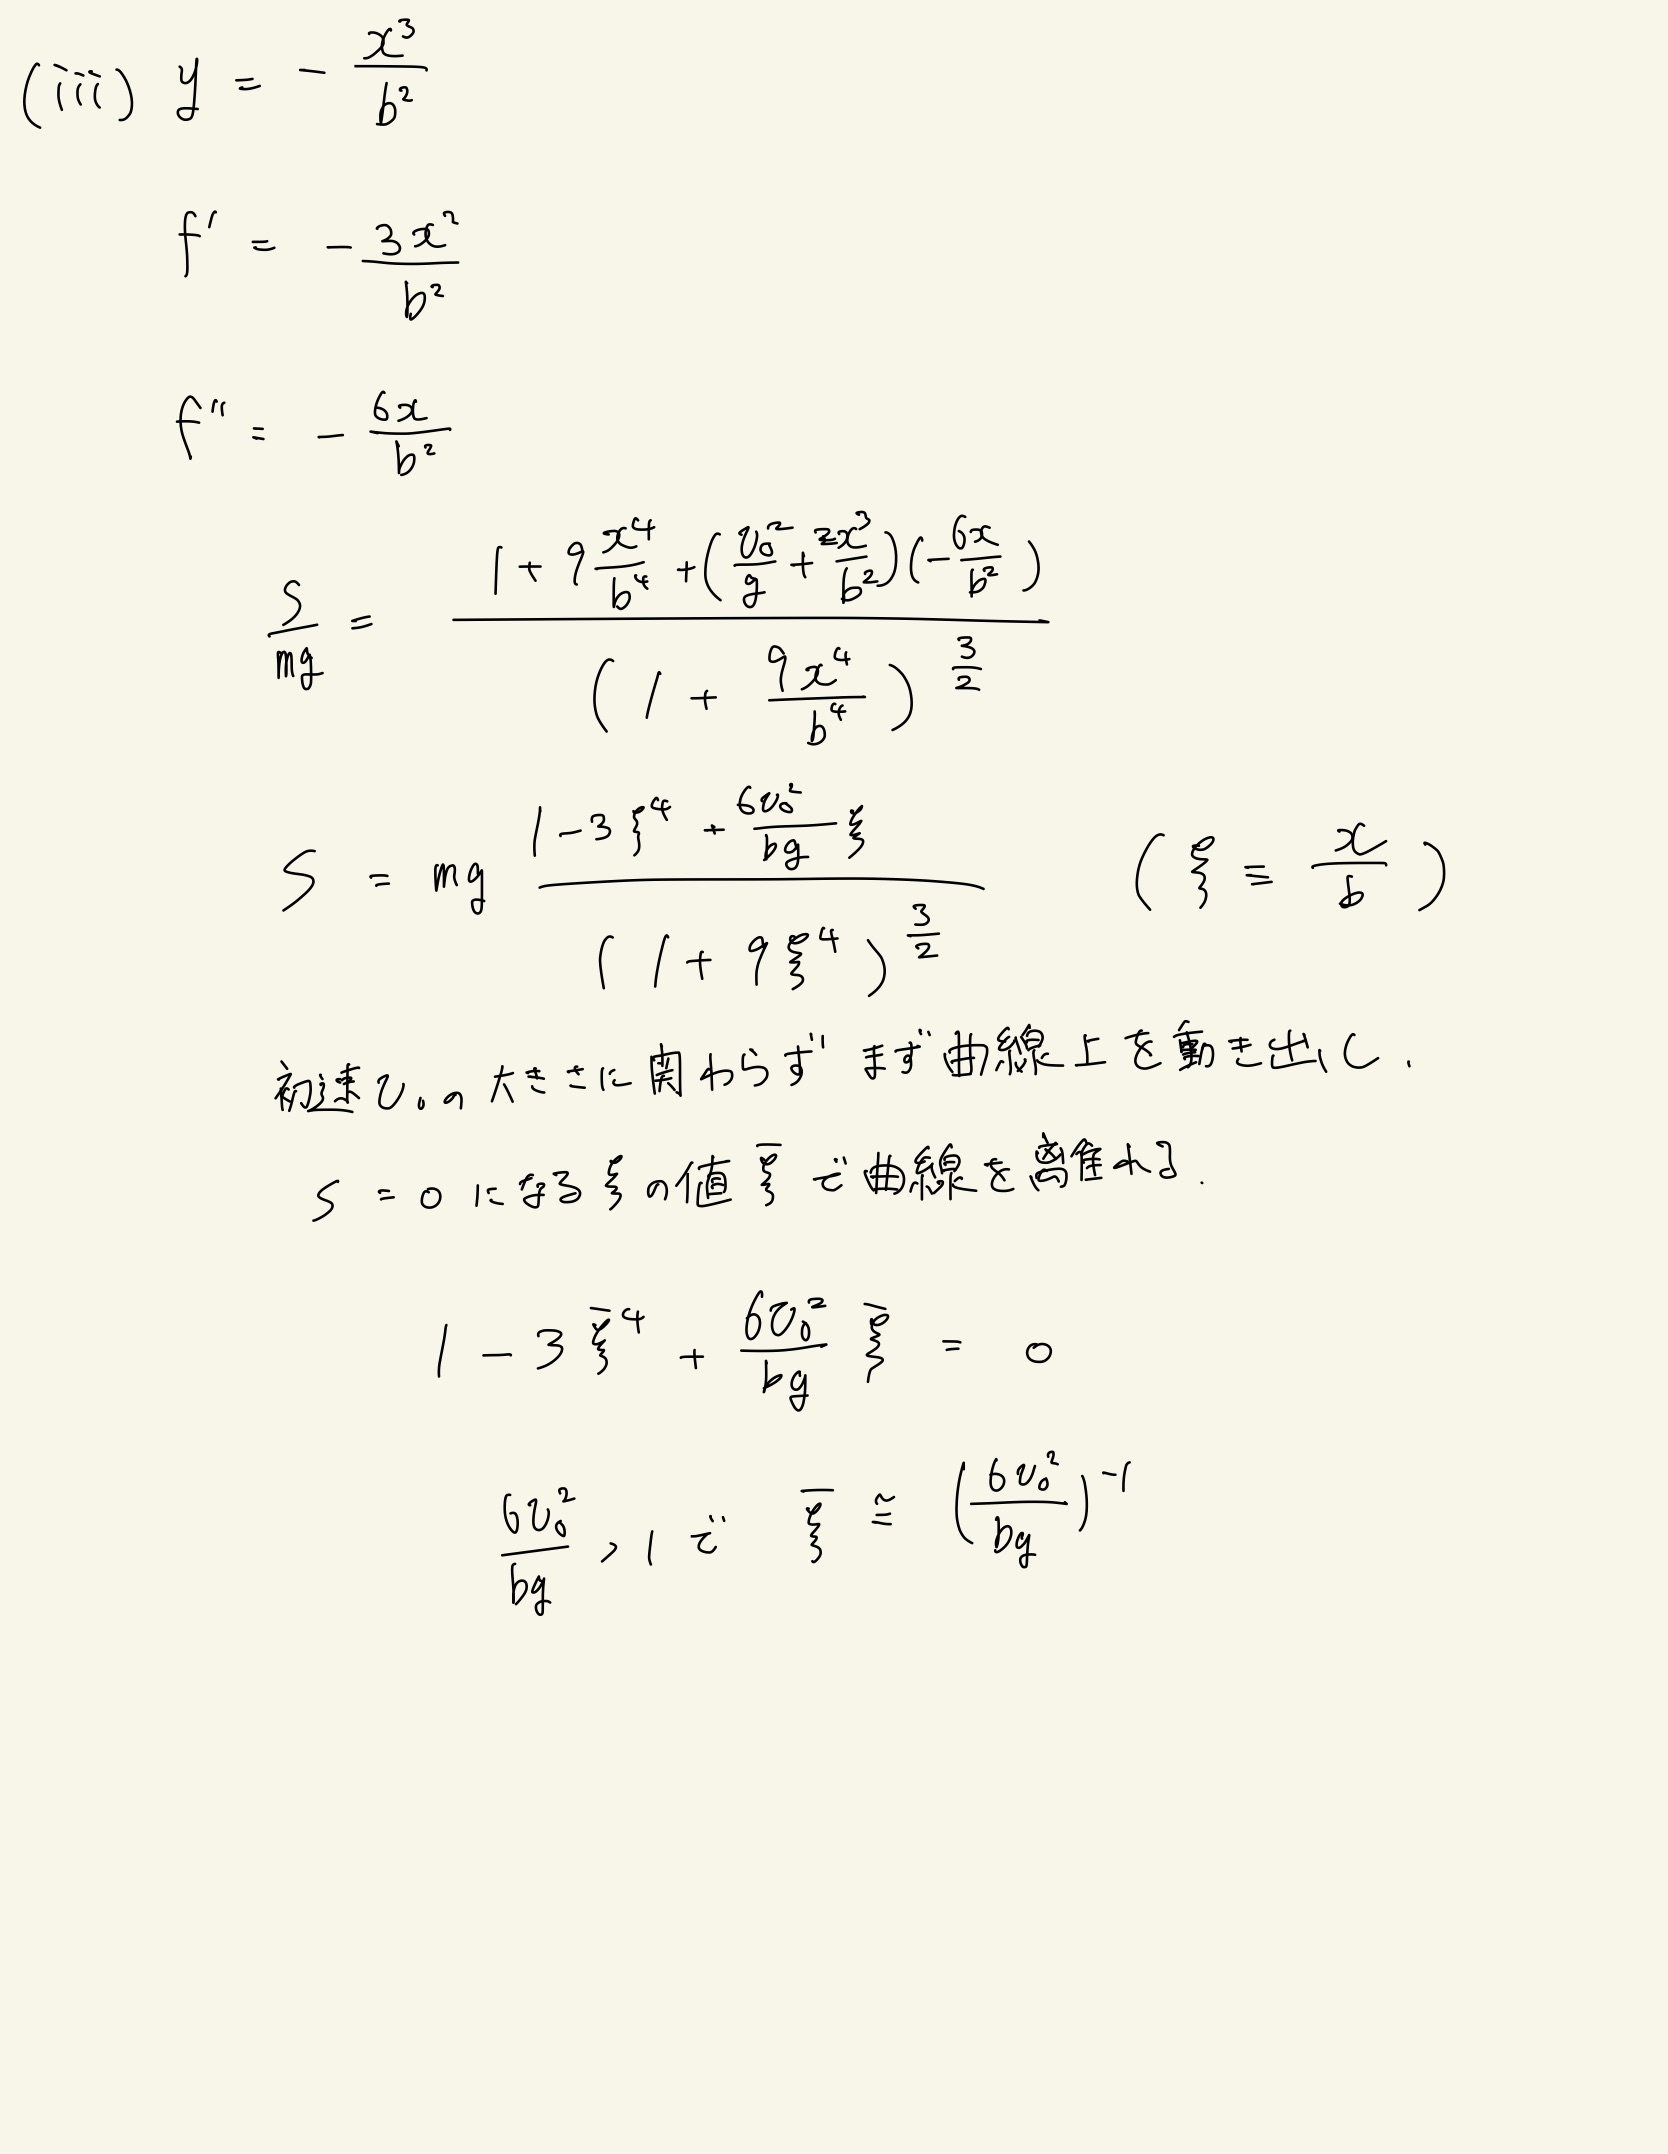 (iii) y = - x³/b²
f' = - 3x²/b²
f'' = - 6x/b²
S/mg = (1 + 9 x⁴/b⁴ + (v₀²/g + 2x³/b²)(- 6x/b²)) / (1 + 9x⁴/b⁴)^(3/2)
S = mg (1 - 3ξ⁴ + 6v₀²/bg ξ) / (1 + 9ξ⁴)^(3/2) (ξ ≡ x/b)
初速v₀の大きさに関わらずまず曲線上を動き出し.
S = 0 になるξの値ξ̄で曲線を離れる.
1 - 3ξ̄⁴ + 6v₀²/bg ξ̄ = 0
6v₀²/bg > 1 で ξ̄ ≅ (6v₀²/bg)⁻¹